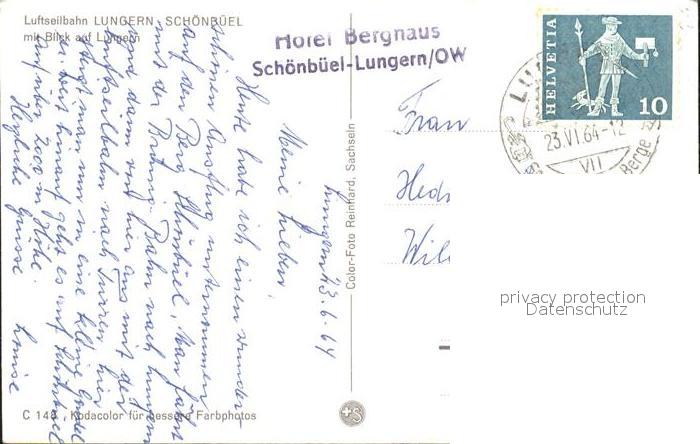 Luftseilbahn LUNGERN - SCHÖNBÜEL
mit Blick auf Lungern
Hotel Berghaus
Schönbüel-Lungern/OW
HELVETIA
10
23.VI.64-12
VII
Berge
Lungern 23.6.64
Meine Lieben,
Heute habe ich einen wunder-
schönen Ausflug unternommen
auf den Berg Schönbüel. Man fährt
mit der Brünig-Bahn nach Lungern
und dann von hier aus mit der
Luftseilbahn nach Turren. Hier
steigt man um in eine kleine Gondel
auf über 2000 m Höhe.
Herzliche Grüsse
Louise
Frau
Color-Foto Reinhard, Sachseln
C 14 Kodacolor für bessere Farbphotos
+S
privacy protection
Datenschutz